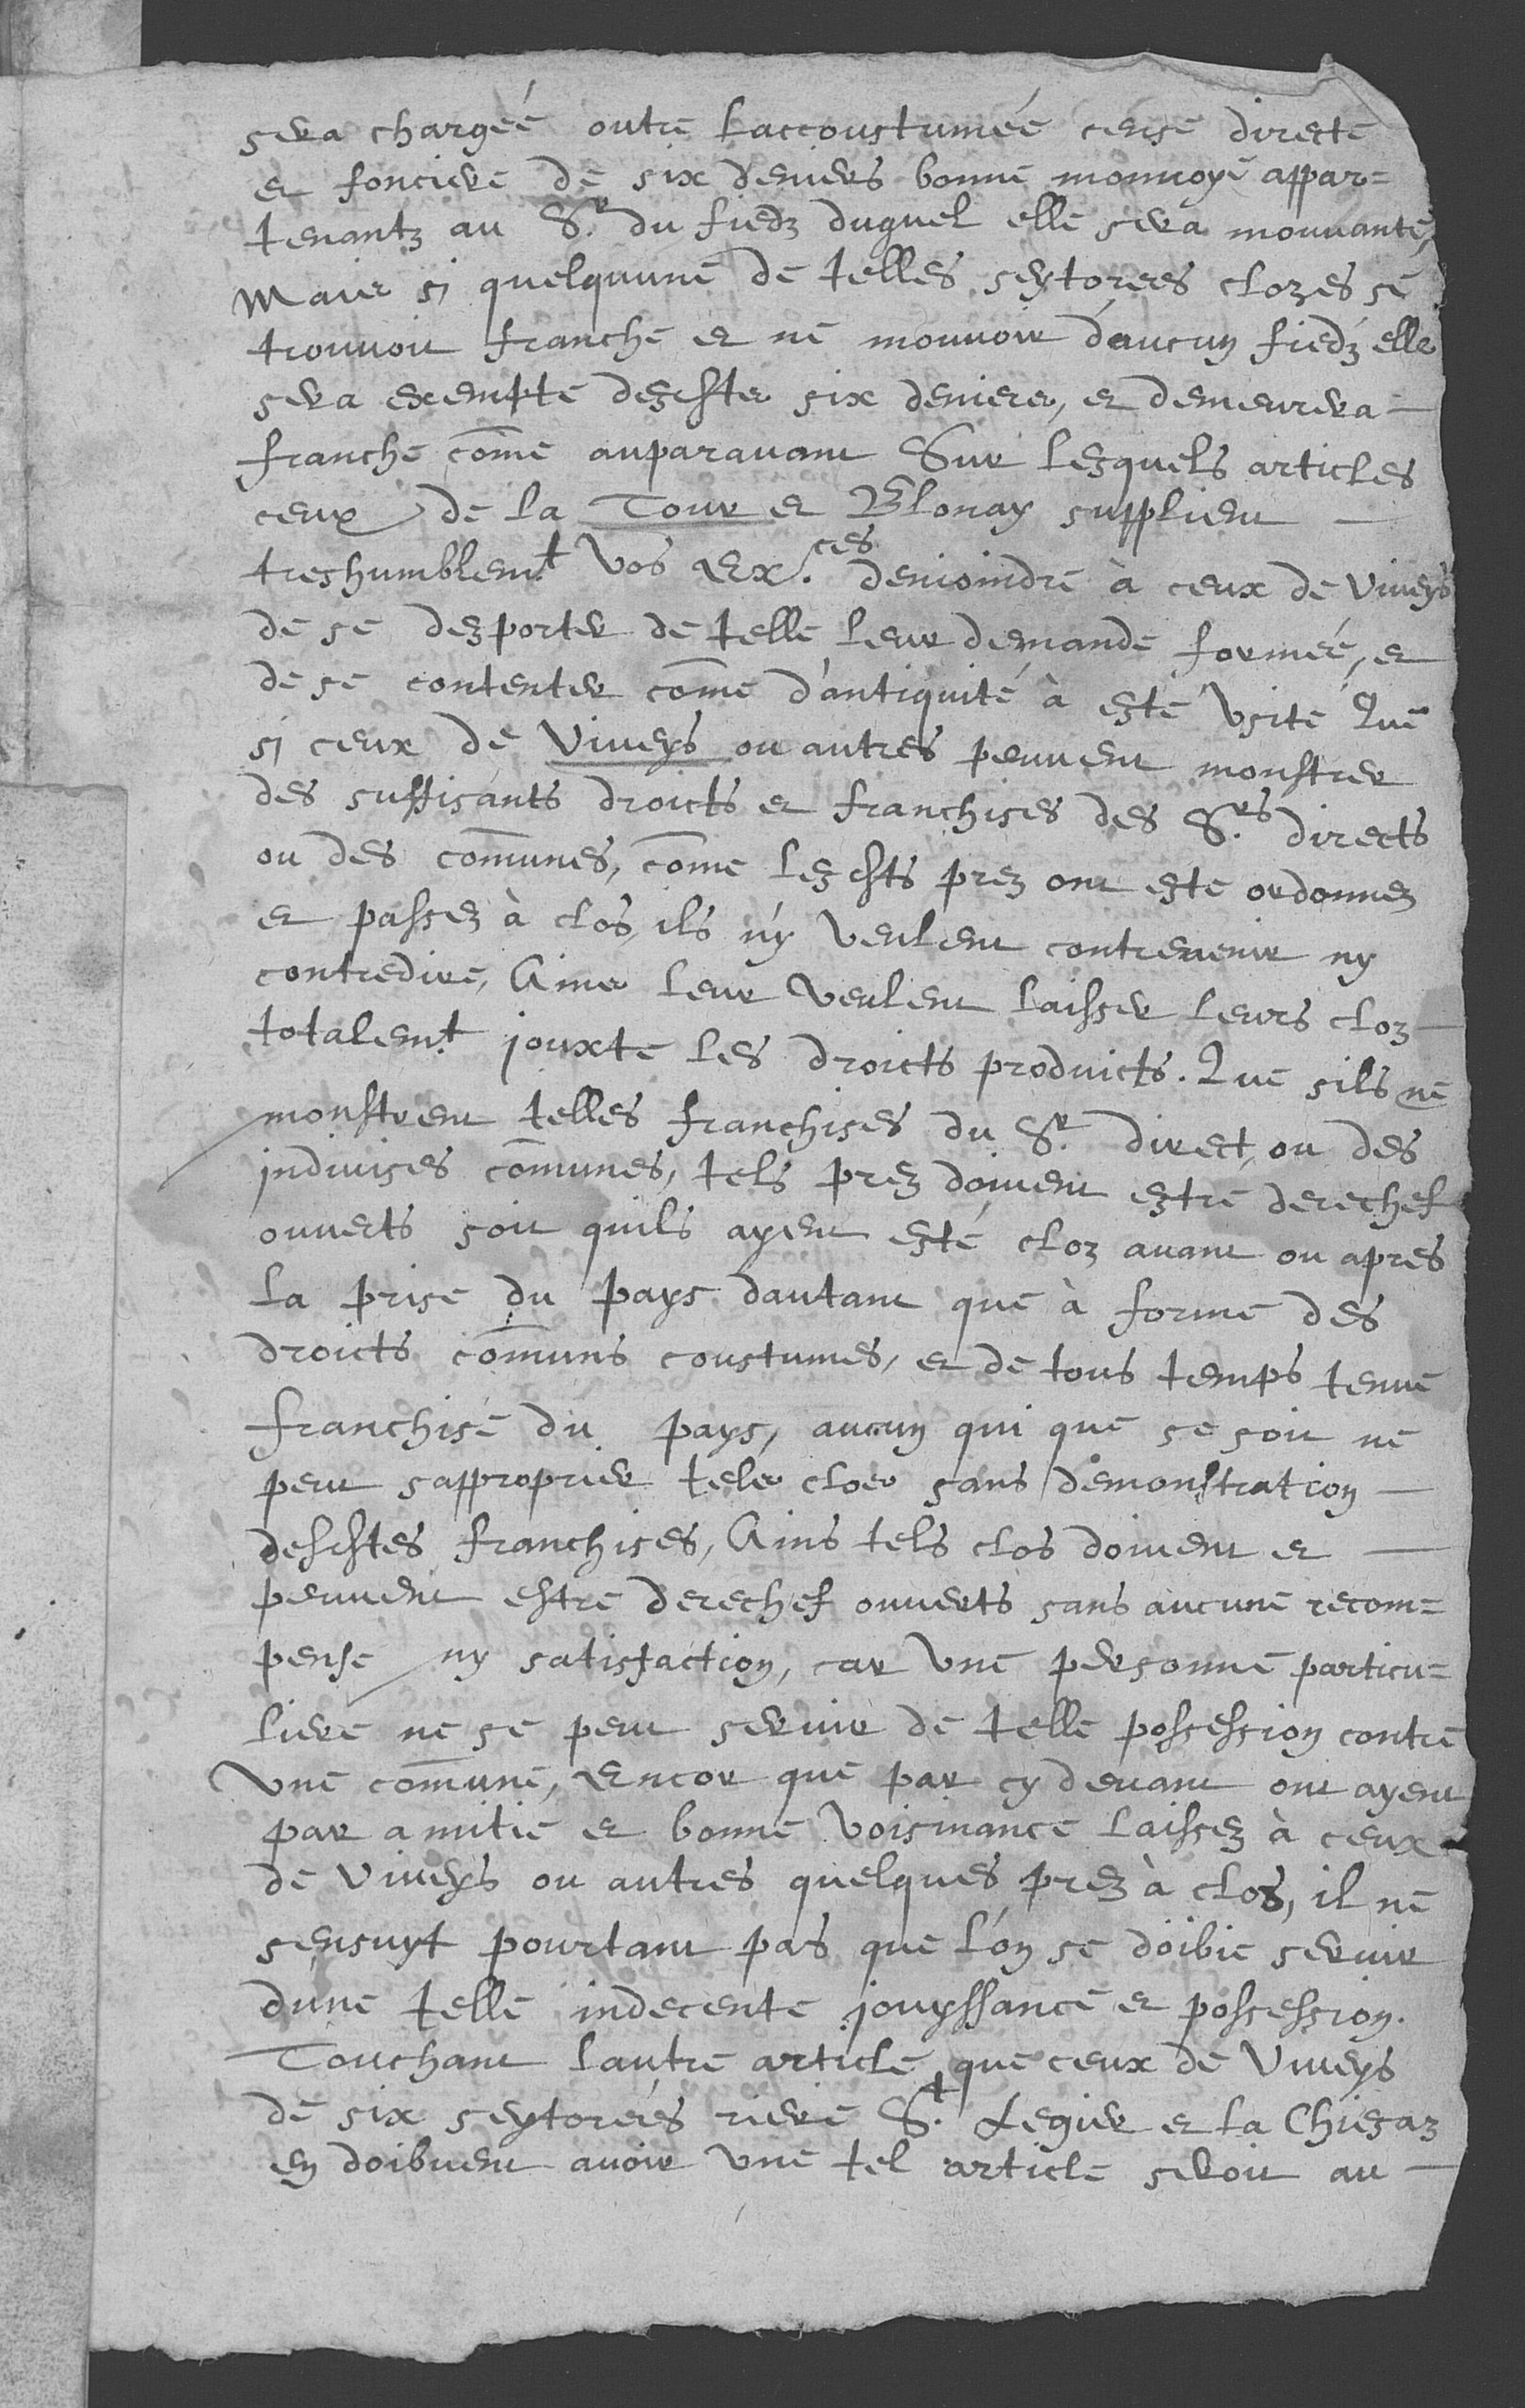 sera chargéé outre laccoustuméé cense directe
et fonciere de six deniers bonne monnoye appar=
tenantz au Sr. du fiedz duquel elle sera mouuante,
Mais si quelquune de telles seytorees clozes se
trouuoit franche et ne mouuoir daucun fiedz elle
sera exempte desdites six deniers, et demeurera —
franche come auparauant Sur lesquels articles
ceux de la Tour et Blonay supplient —
treshumblemt. Vos Ex.ces denioindre à ceux de Viueys
de se desporter de telle leur demande forméé, et
de se contenter come d'antiquité à esté Vsité Que
si ceux de Viueys ou autres peuuent monstrer
des suffisants droicts et franchises des S.rs directs
ou des comunes, come lesdits prez ont esté ordonnez
et passez à clos, ils n'y veulent contreuenir ny
contredire, Ains leur veulent laisser leurs cloz —
totalemt. jouxte les droicts produicts. Que sils ne
monstrent telles franchises du Sr. direct, ou des
indiuises comunes, tels prez doiuent estre derechef
ouuerts soit quils ayent esté cloz auant ou apres
la prise du pays dautant que à forme des
droicts comuns coustumes, et de tous temps tenue
franchise du pays, aucun qui que se soit ne
peut sapproprier tels clos sans demonstration —
desdites franchises, Ains tels clos doiuent et —
peuuent estre derechef ouuerts sans aucune recom=
pense ny satisfaction, car vne personne particu=
liere ne se peut seruir de telle possession contre
vne comune, Encor que par cy deuant ont ayent
par amitié et bonne voisinance laissez à ceux
de Viueys ou autres quelques prez à clos, il ne
sensuyt pourtant pas que lon se doibie seruir
dune telle indecente jouyssance et possession.
Touchant lautre article que ceux de Viueys
de six seytoréés riere St. Legier et la Chiesaz
en doibuent auoir vne tel article seroit au —